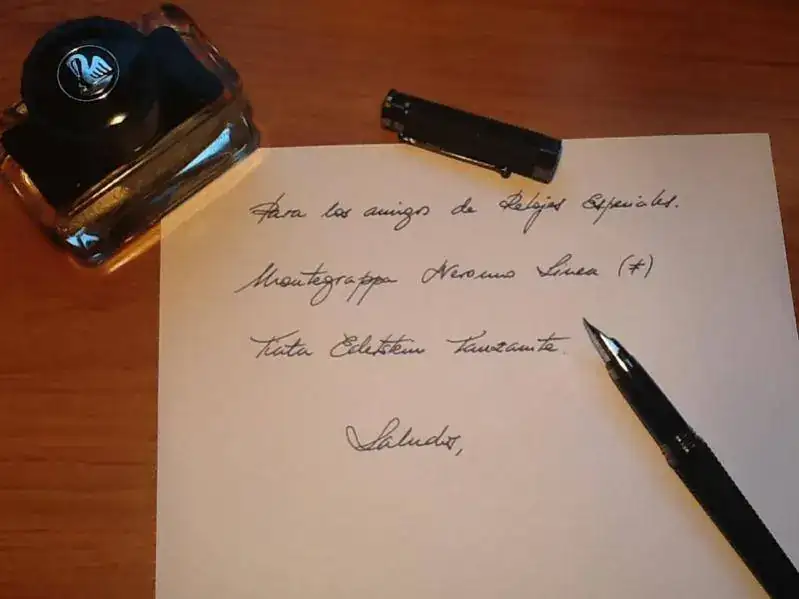 Para los amigos de Relojes Especiales.
Montegrappa Nerouno Linea (F)
Tinta Edelstein Tanzanite.
Saludos,